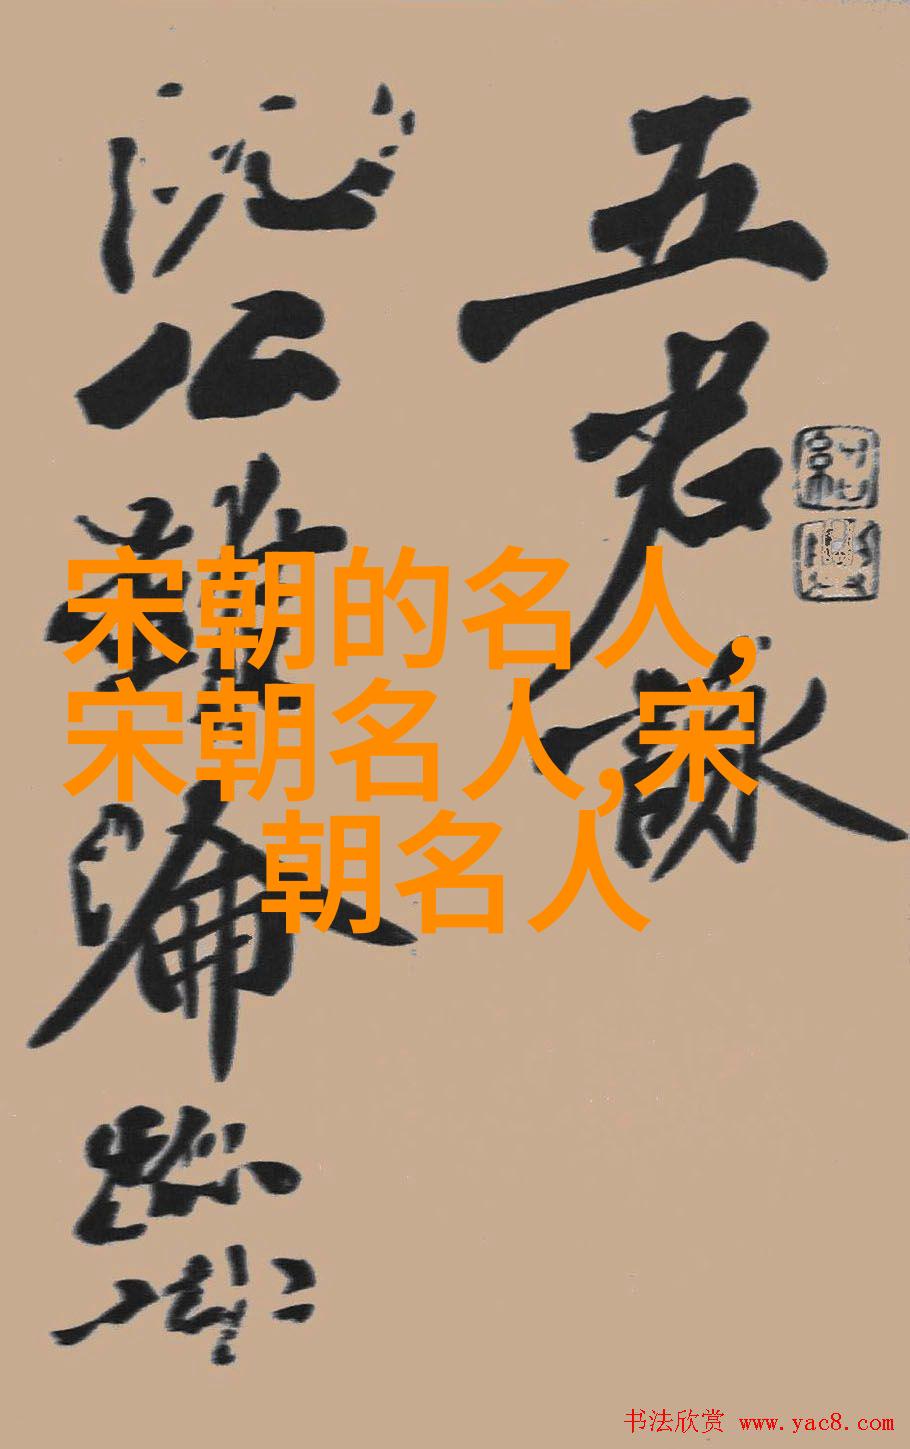 五君詠
阮公雖淪跡
宋朝的名人,
宋朝名人,宋
朝名人
书法欣赏 www.yac8.com